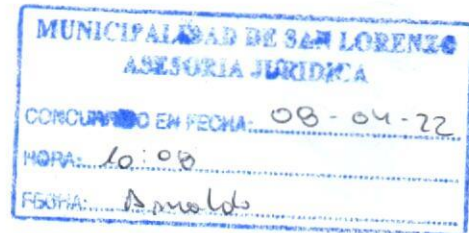 MUNICIPALIDAD DE SAN LORENZO
ASESORIA JURIDICA
CONCURRIDO EN FECHA: 08-04-22
HORA: 10:08
FECHA: Arnaldo